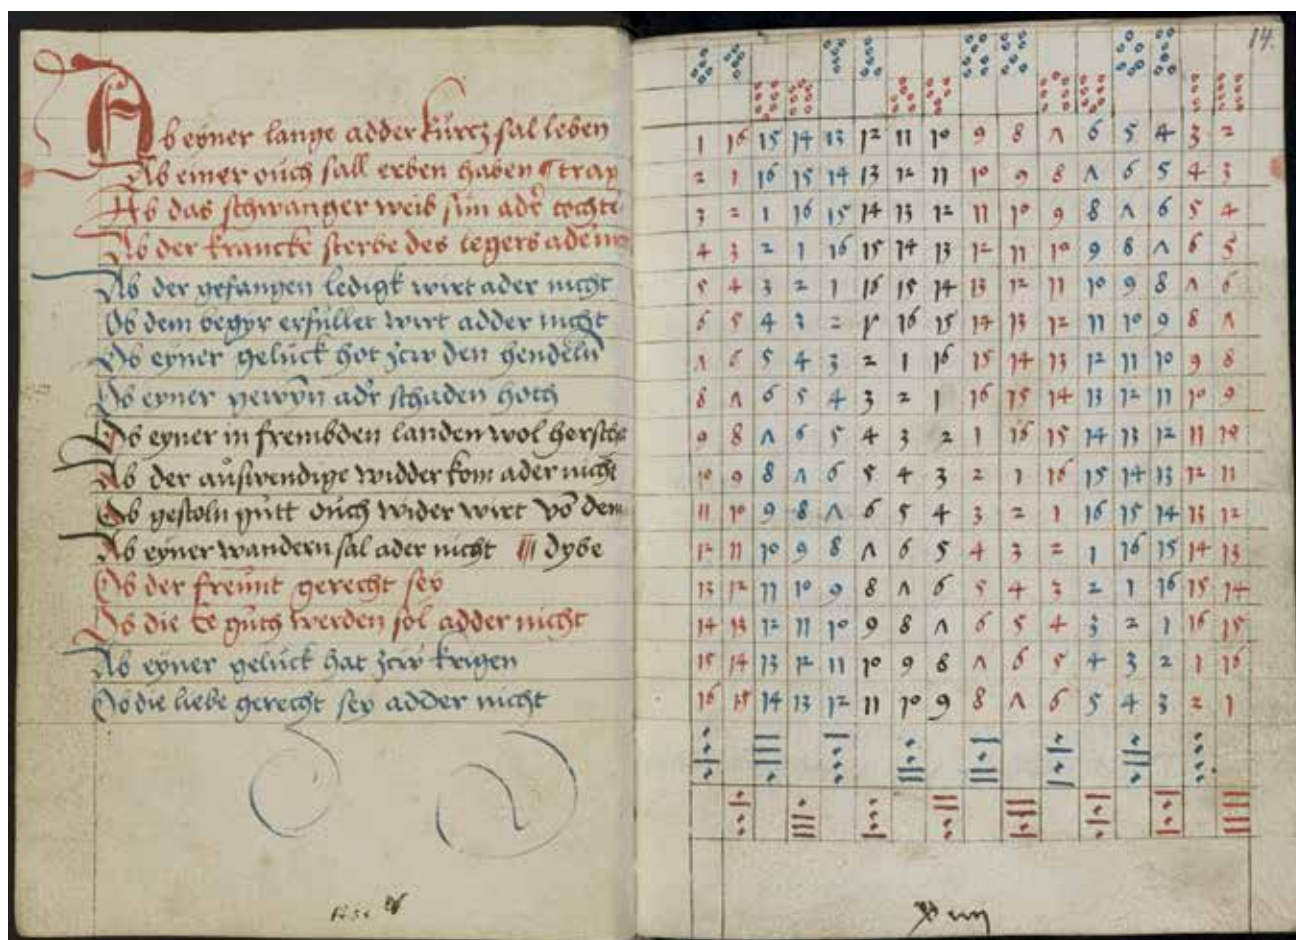 Ab eyner lange adder kurcz sal leben
Ab einer ouch sall erben haben
Ab das schwanger weib sun adr tochter
Ab der krancke sterbe des legers ader
Ab der gefangen ledigk wirt ader nicht
Ob dem begyr erfullet wirt adder nicht
Ob eyner geluck hot zcw den hendeln
Ob eyner gewyn adr schaden hoth
Ob eyner in frembden landen wol
Ab der auswendige widder kom ader nicht
Ob gestoln gutt ouch wider wirt vo dem
Ab eyner wandern sal ader nicht dybe
Ob der freunt gerecht sey
Ob die Ee guth werden sol adder nicht
Ab eyner geluck hat zcw krigen
Ob die liebe gerecht sey adder nicht
14.
1 16 15 14 13 12 11 10 9 8 7 6 5 4 3 2
2 1 16 15 14 13 12 11 10 9 8 7 6 5 4 3
3 2 1 16 15 14 13 12 11 10 9 8 7 6 5 4
4 3 2 1 16 15 14 13 12 11 10 9 8 7 6 5
5 4 3 2 1 16 15 14 13 12 11 10 9 8 7 6
6 5 4 3 2 1 16 15 14 13 12 11 10 9 8 7
7 6 5 4 3 2 1 16 15 14 13 12 11 10 9 8
8 7 6 5 4 3 2 1 16 15 14 13 12 11 10 9
9 8 7 6 5 4 3 2 1 16 15 14 13 12 11 10
10 9 8 7 6 5 4 3 2 1 16 15 14 13 12 11
11 10 9 8 7 6 5 4 3 2 1 16 15 14 13 12
12 11 10 9 8 7 6 5 4 3 2 1 16 15 14 13
13 12 11 10 9 8 7 6 5 4 3 2 1 16 15 14
14 13 12 11 10 9 8 7 6 5 4 3 2 1 16 15
15 14 13 12 11 10 9 8 7 6 5 4 3 2 1 16
16 15 14 13 12 11 10 9 8 7 6 5 4 3 2 1